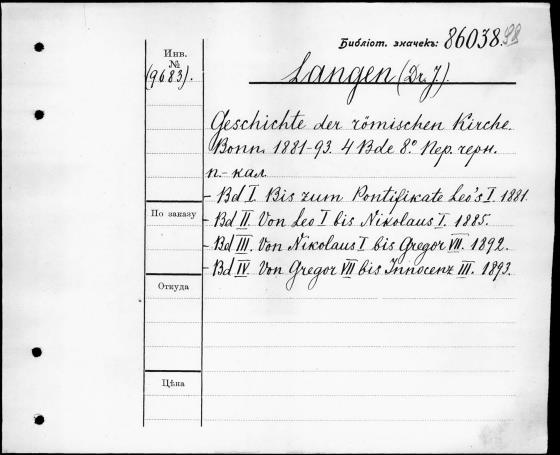 Библіот. значекъ: 86038.
Инв.
№
(9683).
Langen (Dr. J.).
Geschichte der römischen Kirche.
Bonn. 1881-93. 4 Bde 8.° Пер. черн.
п.- кал.
- Bd I. Bis zum Pontifikate Leo's I. 1881.
- Bd II. Von Leo I bis Nikolaus I. 1885.
- Bd III. Von Nikolaus I bis Gregor VII. 1892.
- Bd IV. Von Gregor VII bis Innocenz III. 1893.
По заказу
Откуда
Цѣна